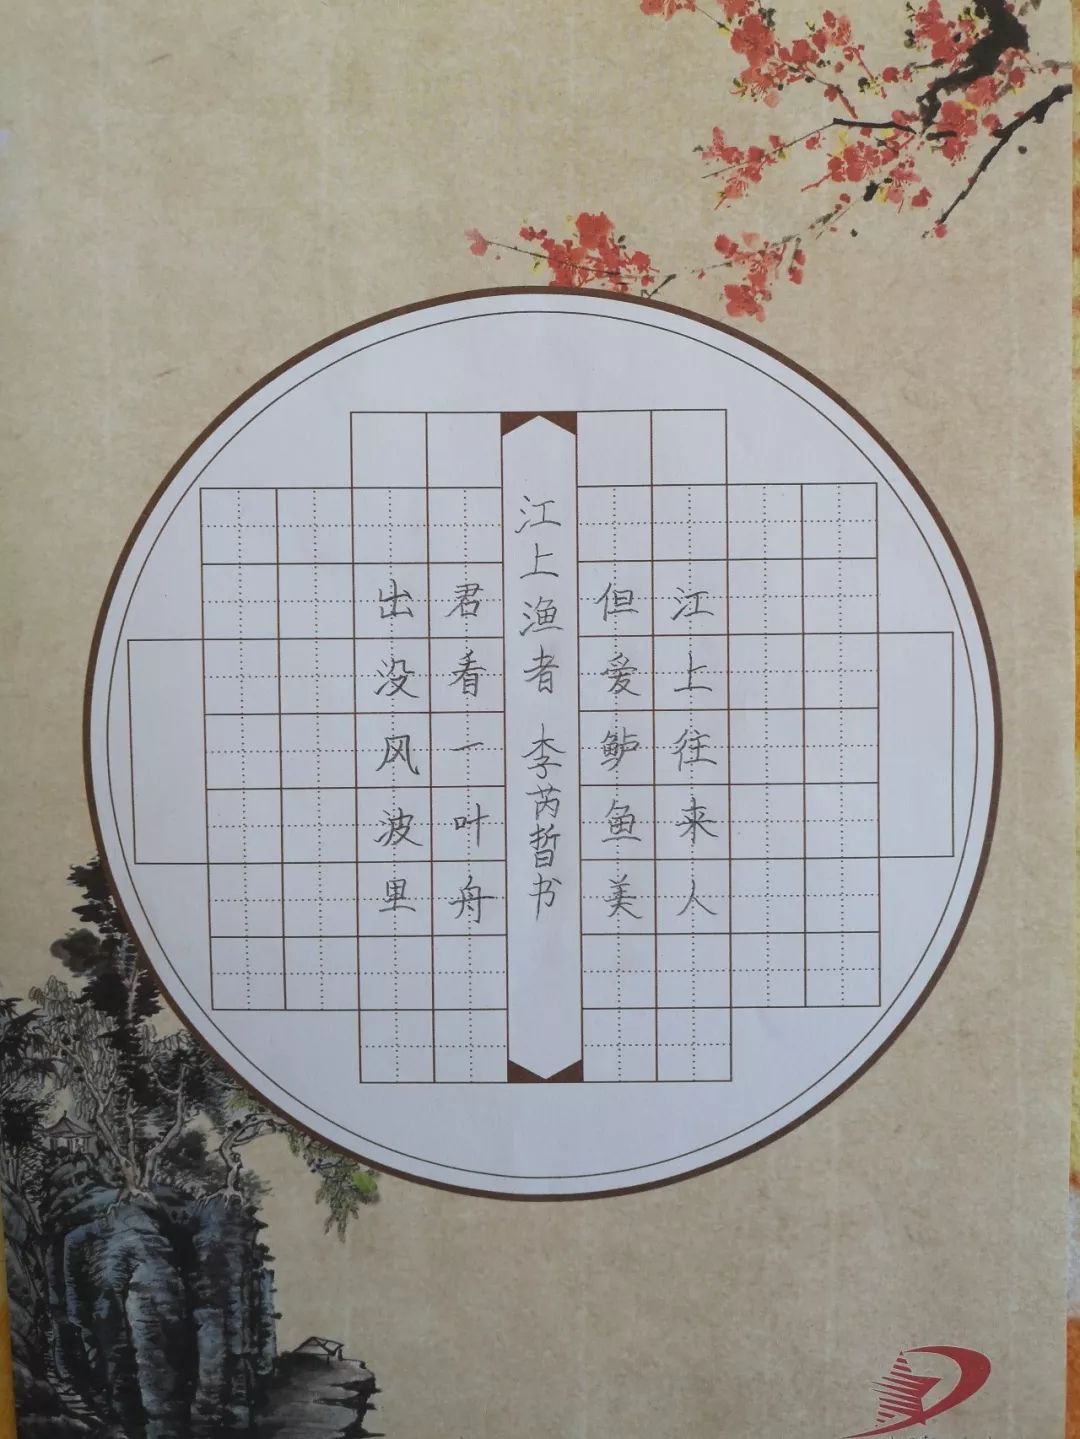 江上往来人
但爱鲈鱼美
江上渔者 李芮晢书
君看一叶舟
出没风波里